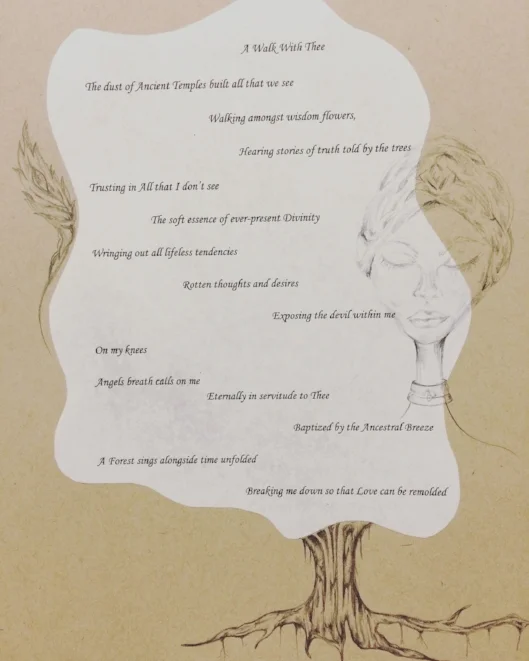 A Walk With Thee
The dust of Ancient Temples built all that we see
Walking amongst wisdom flowers,
Hearing stories of truth told by the trees
Trusting in All that I don't see
The soft essence of ever-present Divinity
Wringing out all lifeless tendencies
Rotten thoughts and desires
Exposing the devil within me
On my knees
Angels breath calls on me
Eternally in servitude to Thee
Baptized by the Ancestral Breeze
A Forest sings alongside time unfolded
Breaking me down so that Love can be remolded